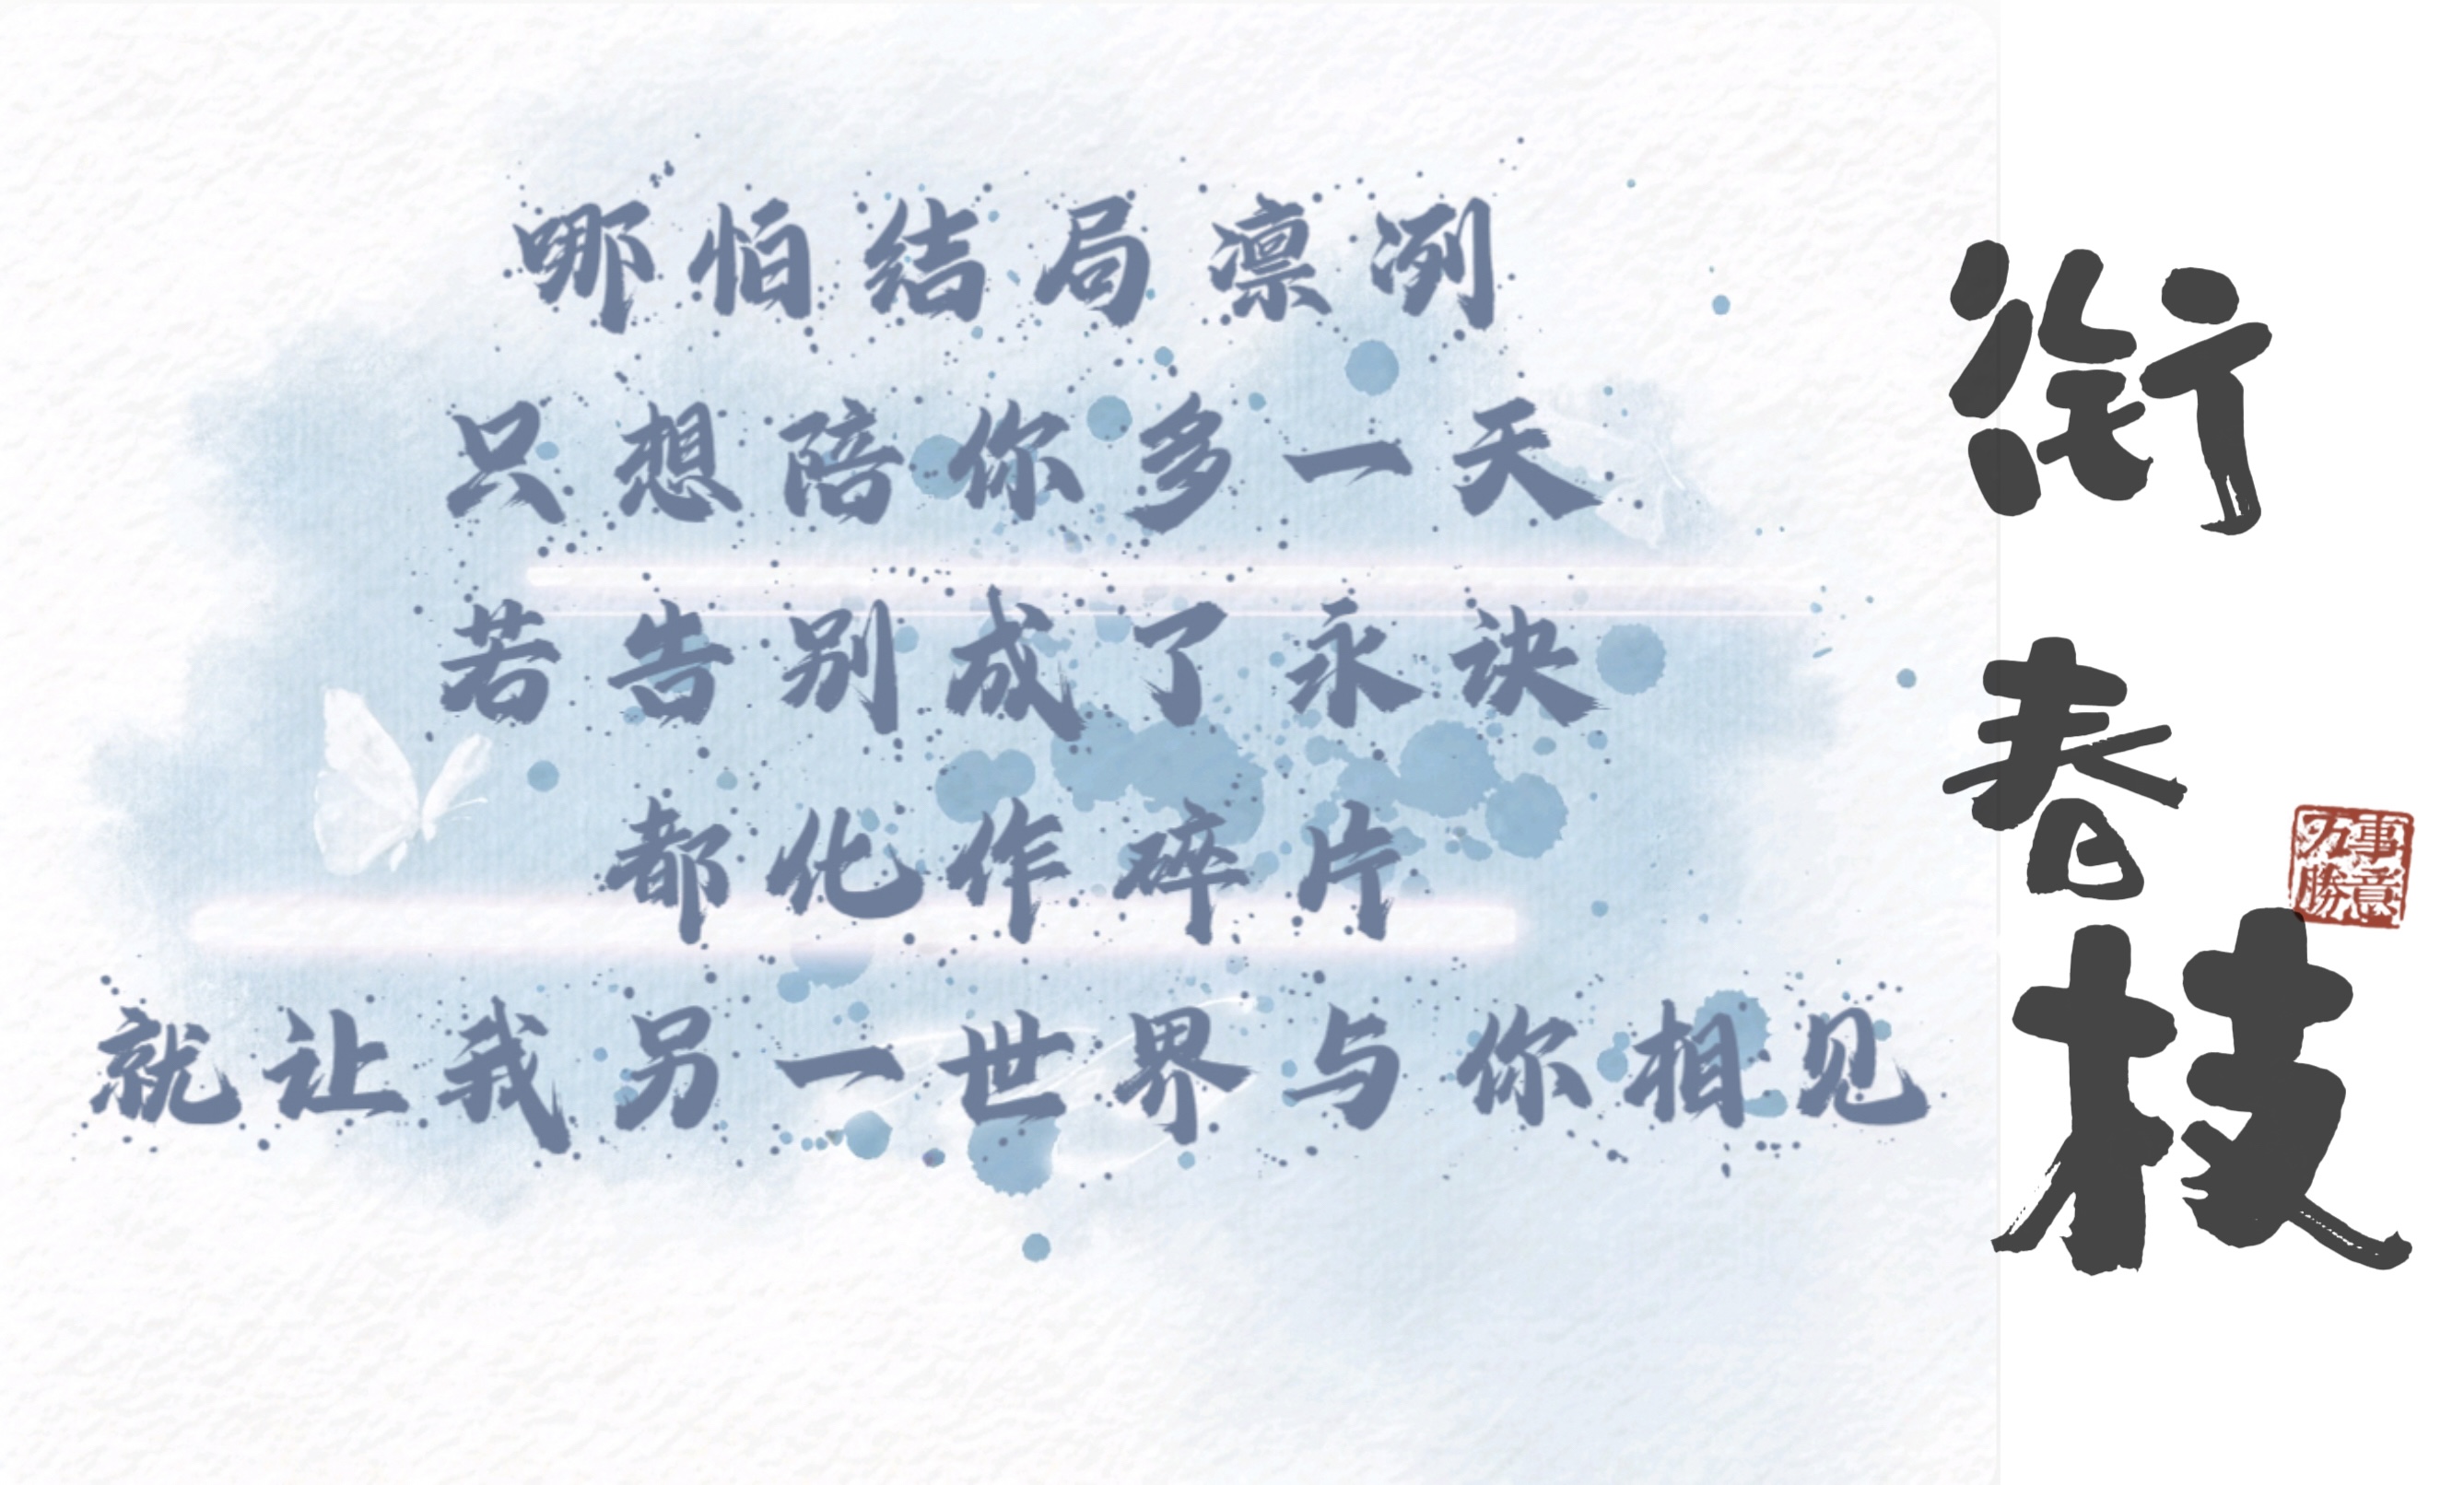 哪怕结局凛冽
只想陪你多一天
若告别成了永诀
都化作碎片
就让我另一世界与你相见
衔春枝